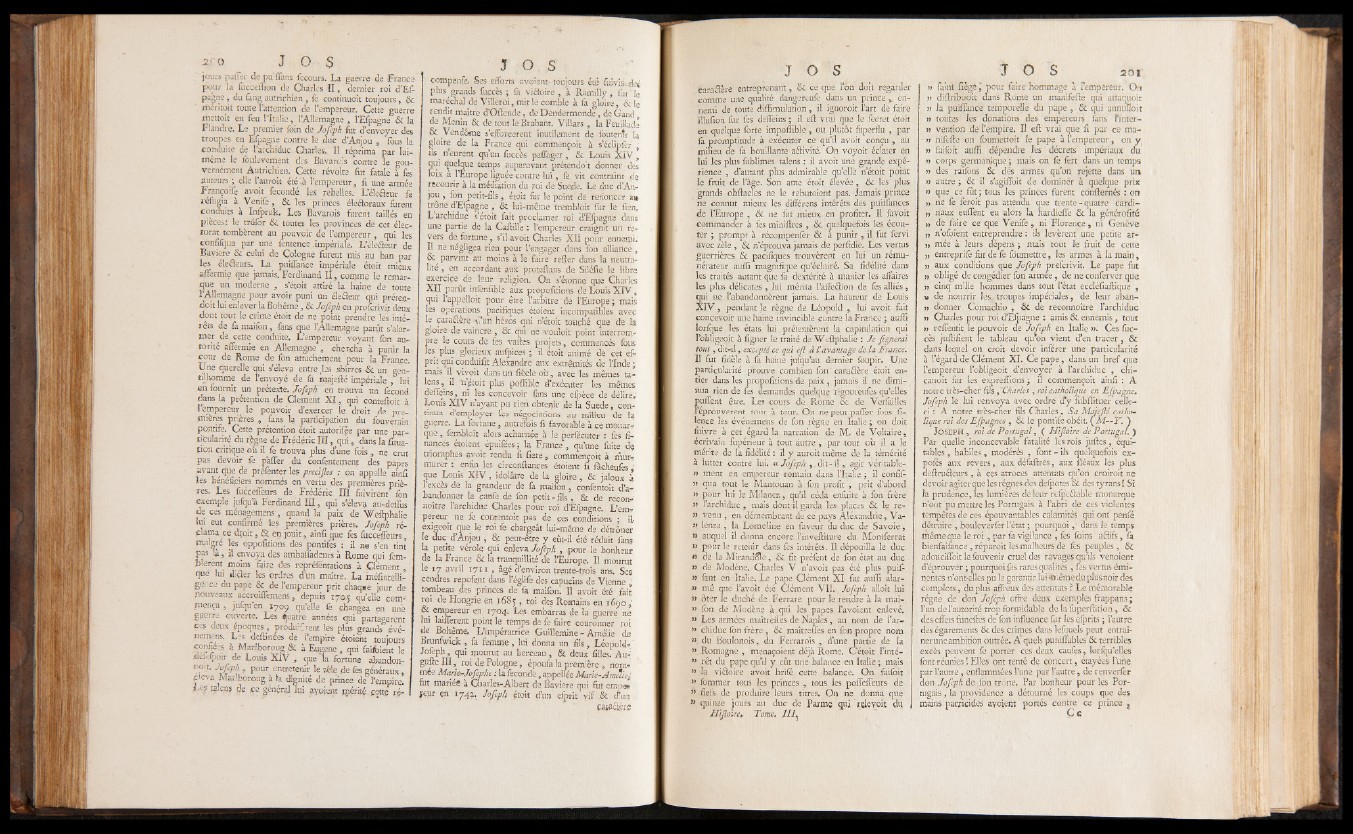 200 J O S
jours passer de puissans secours. La guerre de France
pour la succession de Charles II, dernier roi d'Es-
pagne, du sang autrichien, se continuoit toujours, &
méritoit toute l'attention de l'empereur. Cette guerre
mettoit en feu l'Italie, l'Allemagne, l'Espagne & la
Flandre. Le premier soin de Joseph fut d'envoyer des
troupes en Espagne contre le duc d'Anjou, sous la
conduite de l'archiduc Charles. Il réprima par lui-
même le soulevement des Bavarois contre le gou-
vernement Autrichien. Cette révolte fut fatale à ses
auteurs ; elle l'auroit été à l'empereur, si une armée
Françoise avoit secondé les rebelles. L'électeur se
réfugia à Venise, & les princes électoraux furent
conduits à Inspruk. Les Bavarois furent taillés en
pièces: le trésor & toutes les provinces de cet élec-
torat tombèrent au pouvoir de l'empereur, qui les
confisqua par une sentence impériale. L'électeur de
Baviere & celui de Cologne furent mis au ban par
les électeurs. La puissance impériale étoit mieux
affermie que jamais. Ferdinand II, comme le remar-
que un moderne, s'étoit attiré la haine de toute
l'Allemagne pour avoir puni un électeur qui préten-
doit lui enlever la Bohême, & Joseph en proscrivit deux
dont tout le crime étoit de ne point prendre les inté-
rêts de sa maison, sans que l'Allemagne parût s'alar-
mer de cette conduite. L'empereur voyant son au-
torité affermie en Allemagne, chercha à punir la
cour de Rome de son attachement pour la France.
Une querelle qui s'éleva entre les sbirres & un gen-
tilhomme de l'envoyé de sa majesté impériale, lui
en fournit un prétexte. Joseph en trouva un second
dans la prétention de Clement XI, qui contestoit à
l'empereur le pouvoir d'exercer le droit de pre-
mières prières, sans la participation du souverain
pontife. Cette prétention étoit autorisée par une par-
ticularité du règne de Frédéric III, qui, dans la situa-
tion critique où il se trouva plus d'une fois, ne crut
pas devoir se passer du consentement des papes
avant que de présenter les precistes : on appelle ainsi
les bénéficiers nommés en vertu des premières priè-
res. Les successeurs de Frédéric III suivirent son
exemple jusqu'à Ferdinand III, qui s'éleva au-dessus
de ces ménagemens, quand la paix de Westphalie
lui eut confirmé les premières prières. Joseph ré-
clama ce droit, & en jouit, ainsi que ses successeurs,
malgré les oppositions des pontifes : il ne s'en tint
pas là, il envoya des ambassadeurs à Rome qui sem-
blèrent moins faire des représentations à Clément,
que lui dicter les ordres d'un maître. La mésintelli-
gence du pape & de l'empereur prit chaque jour de
nouveaux accroissemens, depuis 1705 qu'elle com-
mença, jusqu'en 1709 qu'elle se changea en une
guerre ouverte. Les quatre années qui partagerent
ces deux époques, produisirent les plus grands évé-
nemens. Les destinées de l'empire étoient toujours
confiées à Marlboroug & à Eugene, qui faisoient le
désespoir de Louis XIV, que la fortune abandon-
noit. Joseph, pour entretenir le zèle de ses généraux,
éleva Marlboroug à la dignité de prince de l'empire.
Les talens de ce général lui avoient mérité cette ré-
J O S
compense. Ses efforts avoient toujours été suivis des
plus grands succès ; sa victoire, à Ramilly, sur le
maréchal de Villeroi, mit le comble à sa gloire, & le
rendit maître d'Ostende, de Dendermonde, de Gand,
de Menin & de tout le Brabant. Villars, la Feuillade
& Vendôme s'efforcerent inutilement de soutenir la
gloire de la France qui commençoit à s'éclipser ;
ils n'eurent qu'un succès passager, & Louis XIV,
qui quelque temps auparavant prétendoit donner des
loix à l'Europe liguée contre lui, se vit contraint de
recourir à la médiation du roi de Suede. Le duc d'An-
jou, son petit-fils, étoit sur le point de renoncer au
trône d'Espagne, & lui-même trembloit sur le sien.
L'archiduc s'étoit fait proclamer roi d'Espagne dans
une partie de la Castille : l'empereur craignit un re-
vers de fortune, s'il avoit Charles XII pour ennemi.
Il ne négligea rien pour l'engager dans son alliance,
& parvint au moins à le faire rester dans la neutra-
lité, en accordant aux protestans de Silésie le libre
exercice de leur religion. On s'étonne que Charles
XII parût insensible aux propositions de Louis XIV,
qui l'appelloit pour être l'arbitre de l'Europe ; mais
les opérations pacifiques étoient incompatibles avec
le caractère d'un héros qui n'étoit touché que de la
gloire de vaincre, & qui ne vouloit point interrom-
pre le cours de ses vastes projets, commencés sous
les plus glorieux auspices ; il étoit animé de cet es-
prit qui conduisit Alexandre aux extrémités de l'Inde ;
mais il vivoit dans un siécle où, avec les mêmes ta-
lens, il n'étoit plus possible d'exécuter les mêmes
desseins, ni les concevoir sans une espèce de délire.
Louis XIV n'ayant pu rien obtenir de la Suede, con-
tinua d'employer les négociations au milieu de la
guerre. La fortune, autrefois si favorable à ce monar-
que, sembloit alors acharnée à le persécuter : ses fi-
nances étoient épuisées ; la France, qu'une suite de
triomphes avoit rendu si fiere, commençoit à mur-
murer : enfin les circonstances étoient si fâcheuses,
que Louis XIV, idolâtre de la gloire, & jaloux à
l'excès de la grandeur de sa maison, consentoit d'a-
bandonner la cause de son petit-fils, & de recon-
noître l'archiduc Charles pour roi d'Espagne. L'em-
pereur ne se contentoit pas de ces conditions ; il
exigeoit que le roi se chargeât lui-même de détrôner
le duc d'Anjou, & peut-être y eût-il été réduit sans
la petite vérole qui enleva Joseph, pour le bonheur
de la France & la tranquillité de l'Europe. Il mourut
le 17 avril 1711, âgé d'environ trente-trois ans. Ses
cendres reposent dans l'église des capucins de Vienne,
tombeau des princes de sa maison. Il avoit été fait
roi de Hongrie en 1685, roi des Romains en 1690,
& empereur en 1704. Les embarras de la guerre ne
lui laisserent point le temps de se faire couronner roi
de Bohême. L'impératrice Guillemine - Amélie de
Brunswick, sa femme, lui donna un fils, Léopold-
Joseph, qui mourut au berceau, & deux filles. Au-
guste III, roi de Pologne, épousa la première, nom-
mée Marie-Josephe : la seconde, appellée Marie-Amélie,
fut mariée à Charles-Albert de Baviere qui fut empe-
reur en 1742. Joseph étoit d'un esprit vif & d'un
caractère
J O S
caractère entreprenant, & ce que l'on doit regarder
comme une qualité dangereuse dans un prince, en-
nemi de toute dissimulation, il ignoroit l'art de faire
illusion sur ses desseins ; il est vrai que le secret étoit
en quelque sorte impossible, ou plutôt superflu, par
sa promptitude à exécuter ce qu'il avoit conçu, au
milieu de sa bouillante activité. On voyoit éclater en
lui les plus sublimes talens : il avoit une grande expé-
rience, d'autant plus admirable qu'elle n'étoit point
le fruit de l'âge. Son ame étoit élevée, & les plus
grands obstacles ne le rebutoient pas. Jamais prince
ne connut mieux les différens intérêts des puissances
de l'Europe, & ne sut mieux en profiter. Il savoit
commander à ses ministres, & quelquefois les écou-
ter ; prompt à récompenser & à punir, il fut servi
avec zèle, & n'éprouva jamais de perfidie. Les vertus
guerrières & pacifiques trouvèrent en lui un rému-
nérateur aussi magnifique qu'éclairé. Sa fidélité dans
les traités autant que sa dextérité à manier les affaires
les plus délicates, lui mérita l'affection de ses alliés,
qui ne l'abandonnèrent jamais. La hauteur de Louis
XIV, pendant le règne de Léopold, lui avoit fait
concevoir une haine invincible contre la France ; aussi
lorsque les états lui présentèrent la capitulation qui
l'obligeoit à signer le traité de Westphalie : Je signerai
tout, dit-il, excepté ce qui est à l'avantage de la France.
Il fut fidèle à sa haine jusqu'au dernier soupir. Une
particularité prouve combien son caractère étoit en-
tier dans les propositions de paix, jamais il ne dimi-
nua rien de ses demandes quelque rigoureuses qu'elles
pussent être. Les cours de Rome & de Versailles
l'éprouverent tour à tour. On ne peut passer sous si-
lence les événemens de son règne en Italie ; on doit
suivre à cet égard la narration de M. de Voltaire,
écrivain supérieur à tout autre, par tout où il a le
mérite de la fidélité : il y auroit même de la témérité
à lutter contre lui. « Joseph, dit-il, agit véritable-
» ment en empereur romain dans l'Italie ; il confis-
» qua tout le Mantouan à son profit, prit d'abord
» pour lui le Milanez, qu'il céda ensuite à son frère
» l'archiduc, mais dont il garda les places & le re-
» venu, en démembrant de ce pays Alexandrie, Va-
» lenza, la Lomeline en faveur du duc de Savoie,
» auquel il donna encore l'investiture du Montferrat
» pour le retenir dans ses intérêts. Il dépouilla le duc
» de la Mirandole, & fit présent de son état au duc
» de Modène. Charles V n'avoit pas été plus puis-
» sant en Italie. Le pape Clément XI fut aussi alar-
» mé que l'avoit été Clément VII. Joseph alloit lui
» ôter le duché de Ferrare pour le rendre à la mai-
» son de Modène à qui les papes l'avoient enlevé.
» Les armées maîtresses de Naples, au nom de l'ar-
» chiduc son frère, & maîtresses en son propre nom
» du Boulonois, du Ferrarois, d'une partie de la
» Romagne, menaçoient déjà Rome. C'étoit l'inté-
» rêt du pape qu'il y eût une balance en Italie ; mais
» la victoire avoit brisé cette balance. On faisoit
» sommer tous les princes, tous les possesseurs de
» fiefs de produire leurs titres. On ne donna que
» quinze jours au duc de Parme qui relevoit du
Histoire. Tome. III.
J O S 201
» saint siège, pour faire hommage à l'empereur. On
» distribuoit dans Rome un manifeste qui attaquoit
» la puissance temporelle du pape, & qui annulloit
» toutes les donations des empereurs sans l'inter-
» vention de l'empire. Il est vrai que si par ce ma-
» nifeste on soumettoit le pape à l'empereur, on y
» faisoit aussi dépendre les décrets impériaux du
» corps germanique ; mais on se sert dans un temps
» des raisons & des armes qu'on rejette dans un
» autre ; & il s'agissoit de dominer à quelque prix
» que ce fût ; tous les princes furent consternés : on
» ne se seroit pas attendu que trente-quatre cardi-
» naux eussent eu alors la hardiesse & la générosité
» de faire ce que Venise, ni Florence, ni Genève
» n'osoient entreprendre : ils levèrent une petite ar-
» mée à leurs dépens ; mais tout le fruit de cette
» entreprise fut de se soumettre, les armes à la main,
» aux conditions que Joseph prescrivit. Le pape fut
» obligé de congédier son armée, de ne conserver que
» cinq mille hommes dans tout l'état ecclésiastique,
» de nourrir les troupes impériales, de leur aban-
» donner Comachio, & de reconnoître l'archiduc
» Charles pour roi d'Espagne : amis & ennemis, tout
» ressentit le pouvoir de Joseph en Italie ». Ces suc-
cès justifient le tableau qu'on vient d'en tracer, &
dans lequel on croit devoir insérer une particularité
à l'égard de Clément XI. Ce pape, dans un bref que
l'empereur l'obligeoit d'envoyer à l'archiduc, chi-
canoit sur les expressions ; il commençoit ainsi : A
notre très-cher fils, Charles, roi catholique en Espagne.
Joseph le lui renvoya avec ordre d'y substituer celle-
ci : A notre très-cher fils Charles, Sa Majesté catho-
lique roi des Espagnes, & le pontife obéit. (M--Y.)
JOSEPH, roi de Portugal, (Histoire de Portugal.)
Par quelle inconcevable fatalité les rois justes, équi-
tables, habiles, modérés, sont-ils quelquefois ex-
posés aux revers, aux désastres, aux fléaux les plus
destructeurs, à ces atroces attentats qu'on croiroit ne
devoir agiter que les règnes des despotes & des tyrans ! Si
la prudence, les lumières de leur respectable monarque
n'ont pu mettre les Portugais à l'abri de ces violentes
tempêtes de ces épouvantables calamités qui ont pensé
détruire, bouleverser l'état ; pourquoi, dans le temps
même que le roi, par sa vigilance, ses soins actifs, sa
bienfaisance, réparoit les malheurs de ses peuples, &
adoucissoit le souvenir cruel des ravages qu'ils venoient
d'éprouver ; pourquoi ses rares qualités, ses vertus émi-
nentes n'ont-elles pu le garantir lui-même du plus noir des
complots, du plus affreux des attentats ? Le mémorable
règne de don Joseph offre deux exemples frappans ;
l'un de l'autorité trop formidable de la superstition, &
des effets funestes de son influence sur les esprits ; l'autre
des égaremens & des crimes dans lesquels peut entraî-
ner une ambition outrée. A quels punissables & terribles
excès peuvent se porter ces deux causes, lorsqu'elles
sont réunies ! Elles ont tenté de concert, étayées l'une
par l'autre, enflammées l'une par l'autre, de renverser
don Joseph de son trône. Par bonheur pour les Por-
tugais, la providence a détourné les coups que des
mains parricides avoient portés contre ce prince,
C c